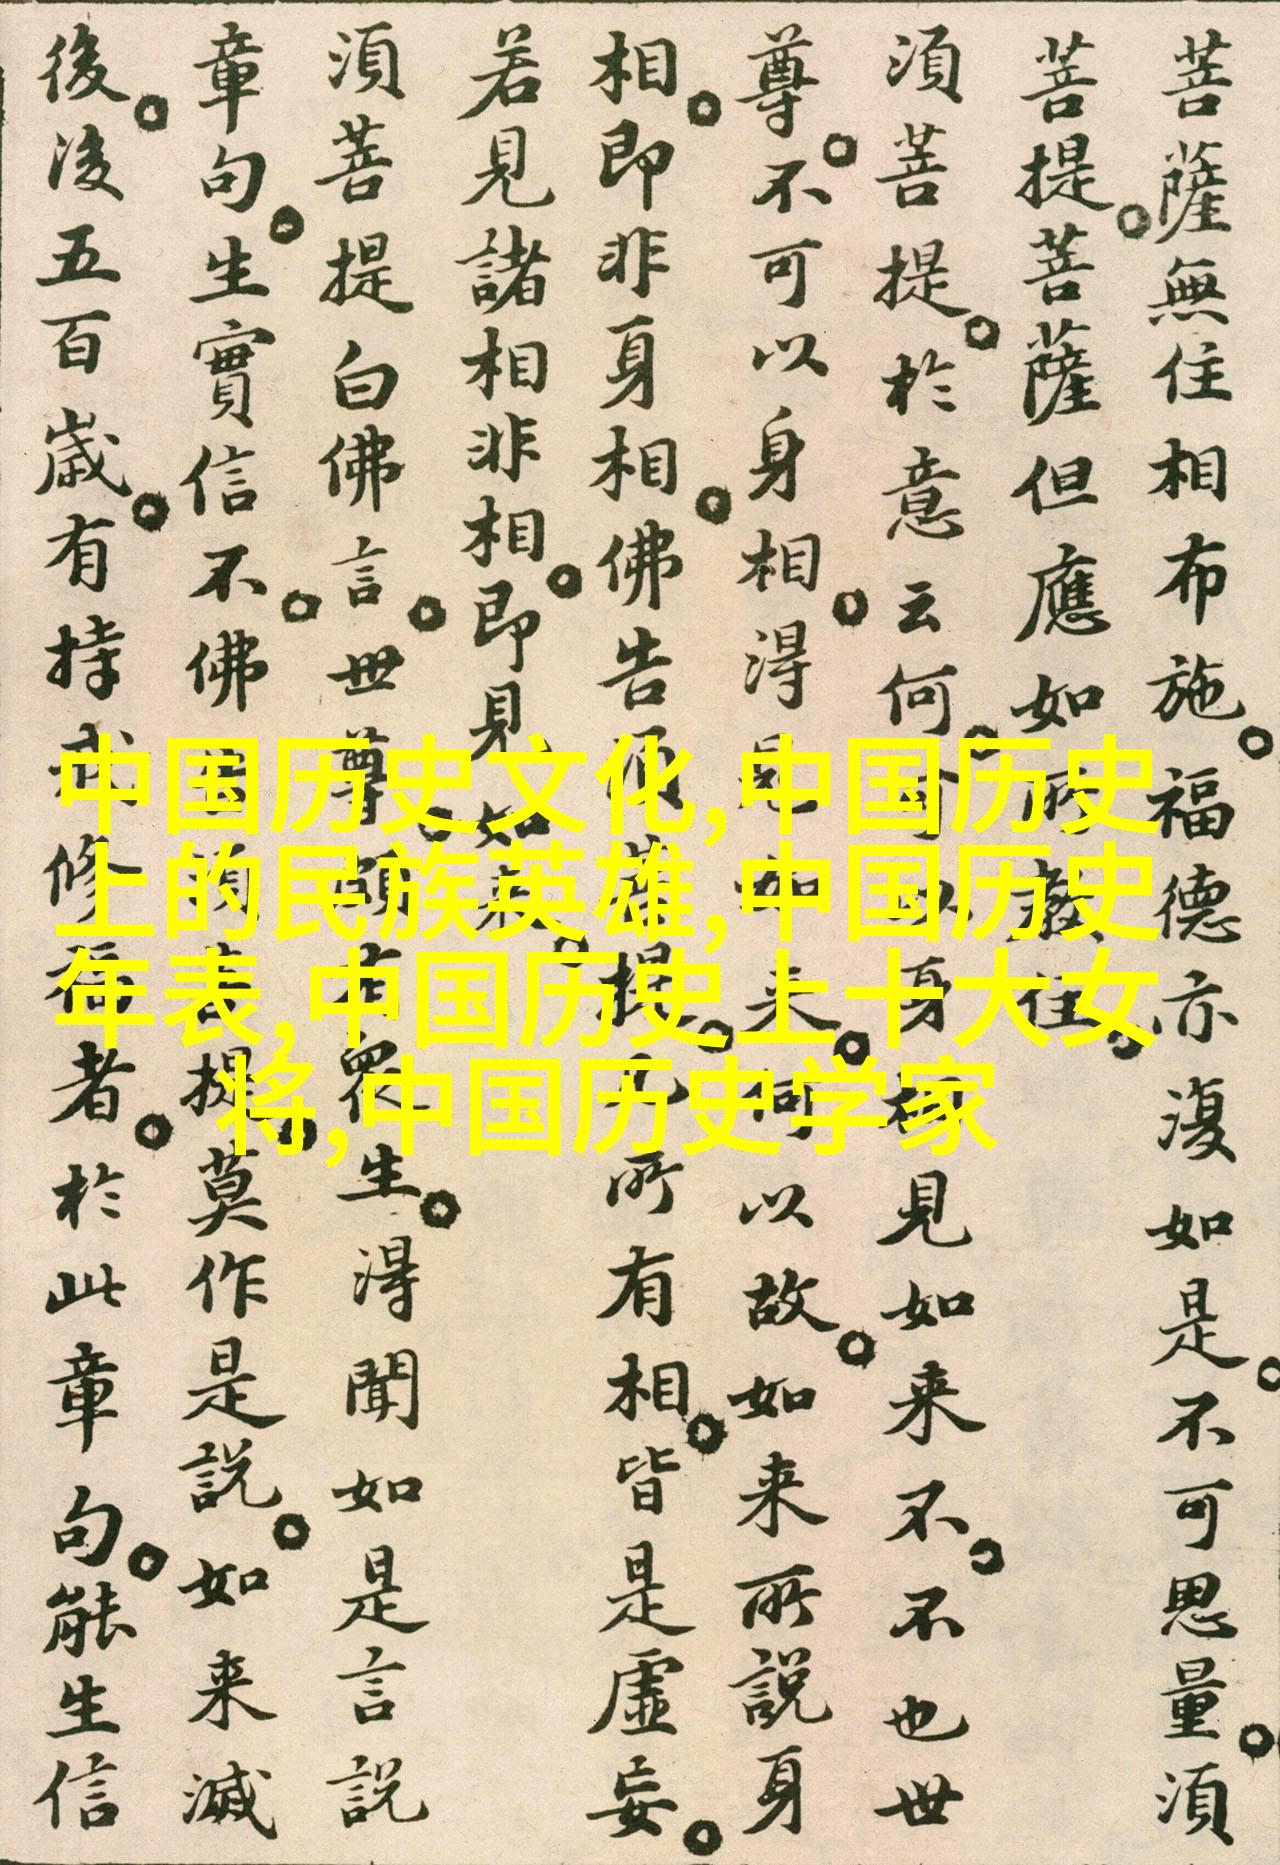 菩薩無住相布施。福德亦復如是。不可思量。須
菩提。菩薩但應如所教住。
須菩提。於意云何。可以身相見如来不。不也世
尊。不可以身相。得見如来。何以故。如来所說身
相。即非身相。佛告須菩提。凡所有相。皆是虛妄。
若見諸相非相。即見如来。
須菩提白佛言。世尊。頗有眾生。得聞如是言說
章句。生實信不。佛告須菩提。莫作是說。如来滅
後。後五百歲。有持戒修福者。於此章句。能生信
中国历史文化,中国历史
上的民族英雄,中国历史
年表,中国历史上十大女
将,中国历史学家